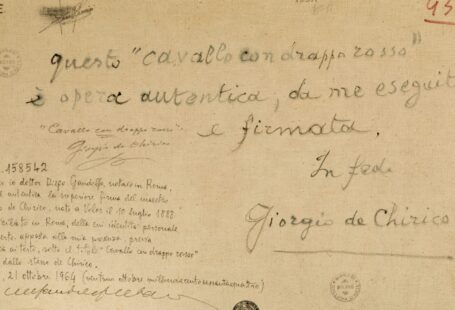 E
93
questo "cavallo con drappo rosso"
è opera autentica, da me eseguit
e firmata.
"Cavallo con drappo rosso"
Giorgio de Chirico
In fede
Giorgio de Chirico
158542
io dottor Diego Gandolfo, notaro in Roma,
autentica la superiore firma del maestro
de Chirico, nato a Volos il 10 luglio 1888
in Roma, della cui identità personale
certo, apposta alla mia presenza, previa
titolo "Cavallo con drappo rosso"
dallo stesso de Chirico.
21 ottobre 1964 (ventuno ottobre millenovecentosessantaquattro)